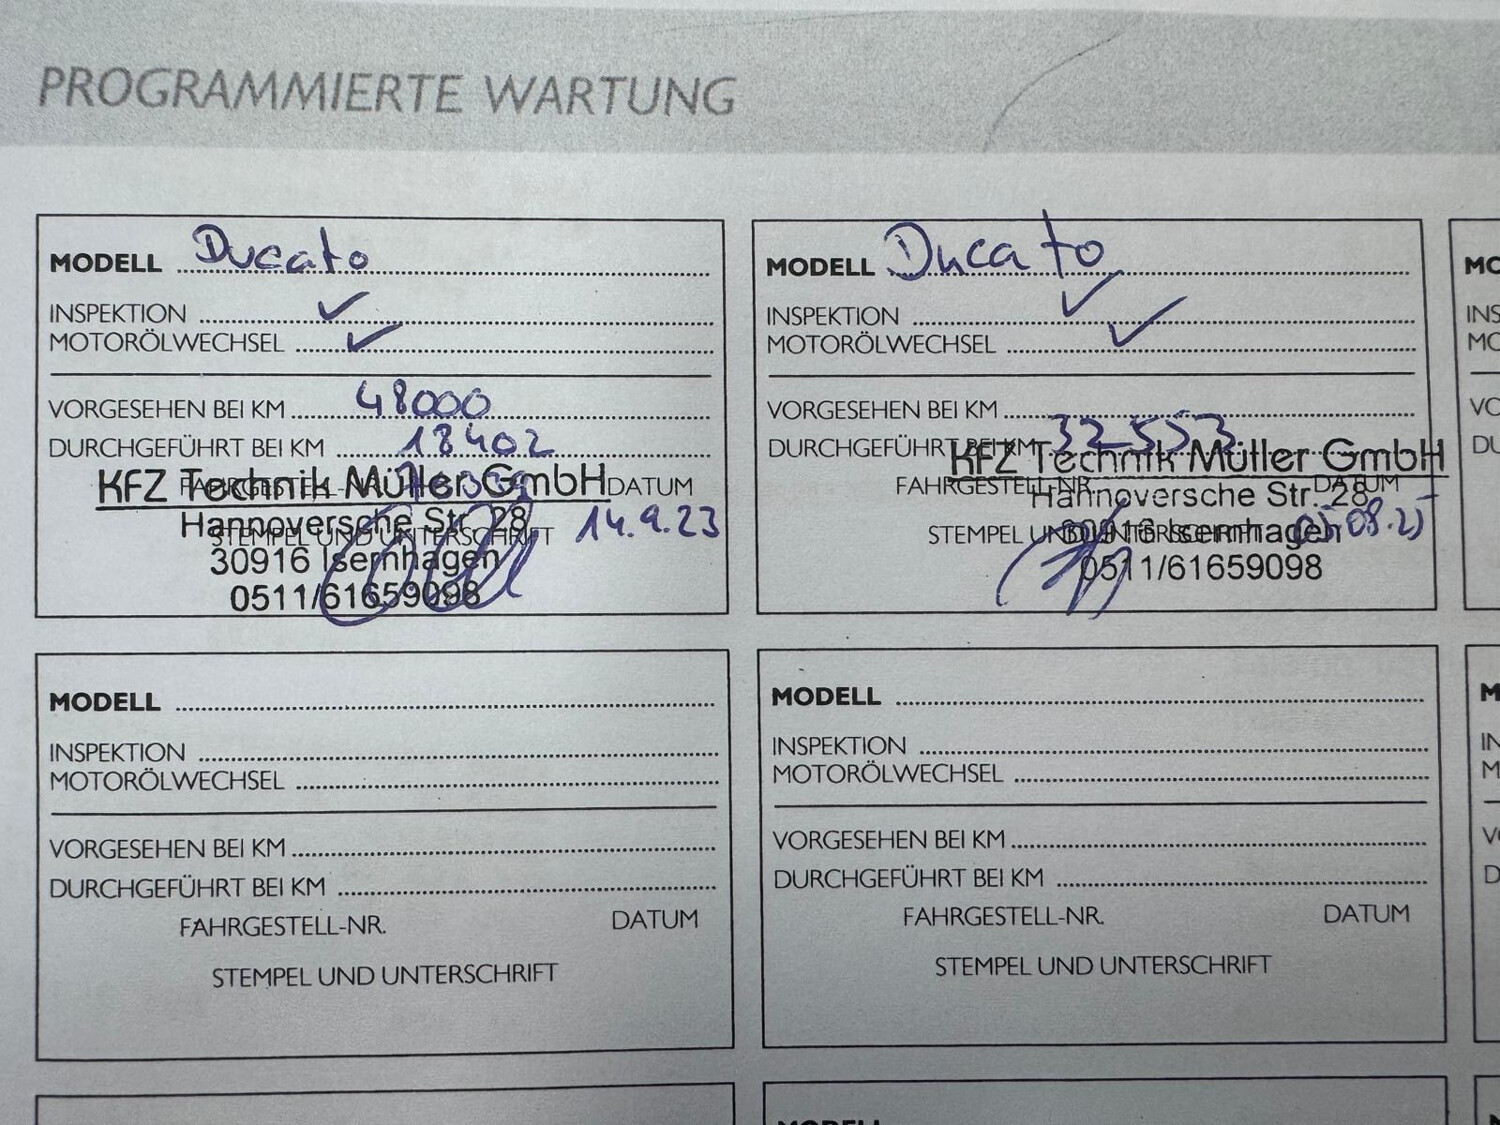 PROGRAMMIERTE WARTUNG
MODELL Ducato
INSPEKTION ✓
MOTORÖLWECHSEL ✓
VORGESEHEN BEI KM 48000
DURCHGEFÜHRT BEI KM 18402
FAHRGESTELL-NR. DATUM
KFZ Technik Müller GmbH
Hannoversche Str. 28
14.9.23
STEMPEL UND UNTERSCHRIFT
30916 Isernhagen
0511/61659098
MODELL Ducato
INSPEKTION ✓
MOTORÖLWECHSEL ✓
VORGESEHEN BEI KM
DURCHGEFÜHRT BEI KM 32553
KFZ Technik Müller GmbH
FAHRGESTELL-NR. DATUM
Hannoversche Str. 28
STEMPEL UND UNTERSCHRIFT
30916 Isernhagen
05.08.25
0511/61659098
MODELL
INSPEKTION
MOTORÖLWECHSEL
VORGESEHEN BEI KM
DURCHGEFÜHRT BEI KM
FAHRGESTELL-NR. DATUM
STEMPEL UND UNTERSCHRIFT
MODELL
INSPEKTION
MOTORÖLWECHSEL
VORGESEHEN BEI KM
DURCHGEFÜHRT BEI KM
FAHRGESTELL-NR. DATUM
STEMPEL UND UNTERSCHRIFT